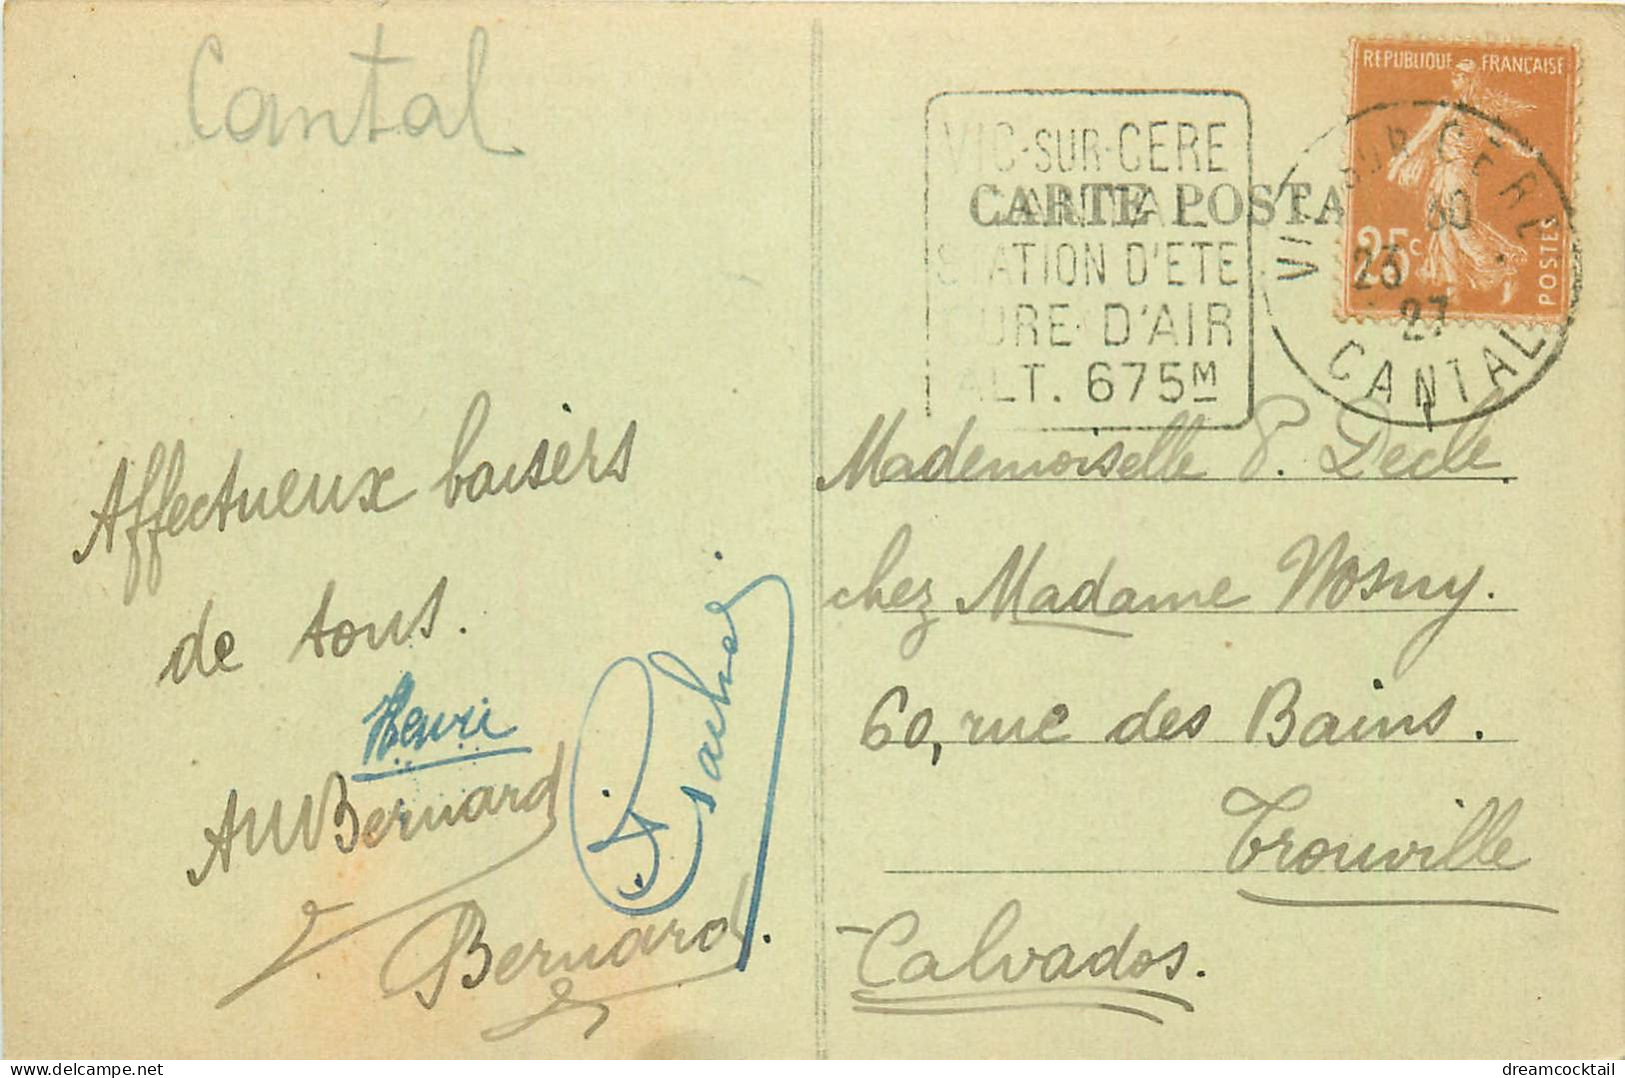 Cantal
Affectueux baisers
de tous.
Henri
AUBernard
Bernard.
CARTE POSTA
VIC-SUR-CERE
CANTAL
STATION D'ETE
CURE D'AIR
ALT. 675M
REPUBLIQUE FRANÇAISE
25c
POSTES
VIC SUR CERE
23
27
CANTAL
Mademoiselle P. Decle.
chez Madame Nosny.
60, rue des Bains.
Trouville
Calvados.
www.dreamcocktail.com